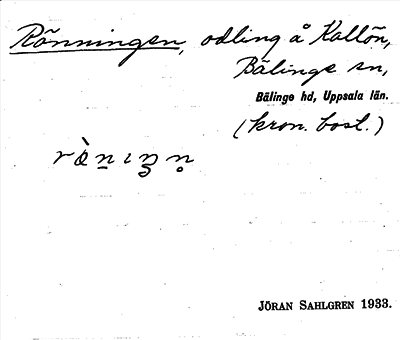 Rönningen, odling å Kallön,
Bälinge sn,
Bälinge hd, Uppsala län.
(kron. bost.)
JÖRAN SAHLGREN 1933.